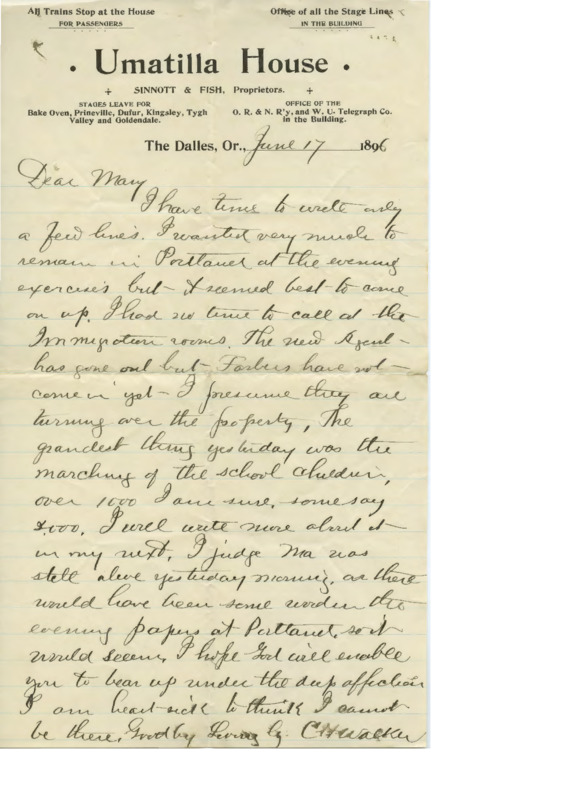 All Trains Stop at the House
FOR PASSENGERS
Office of all the Stage Lines
IN THE BUILDING
Umatilla House
SINNOTT & FISH, Proprietors.
STAGES LEAVE FOR
Bake Oven, Prineville, Dufur, Kingsley, Tygh
Valley and Goldendale.
OFFICE OF THE
O. R. & N. R'y, and W. U. Telegraph Co.
in the Building.
The Dalles, Or., June 17 1896
Dear Mary
I have time to write only
a few lines. I wanted very much to
remain in Portland at the evening
exercises but it seemed best to come
on up. I had no time to call at the
Immigration rooms. The new Agent
has gone out but Forbes have not
come in yet - I presume they are
turning over the property, The
grandest thing yesterday was the
marching of the school children,
over 1000 I am sure, some say
2,000. I will write more about it
in my next. I judge Ma was
still alive yesterday morning, as there
would have been some word in the
evening papers at Portland, so it
would seem, I hope God will enable
you to bear up under the deep affliction
I am heart sick to think I cannot
be there, Goodby Lovingly. C H Walker